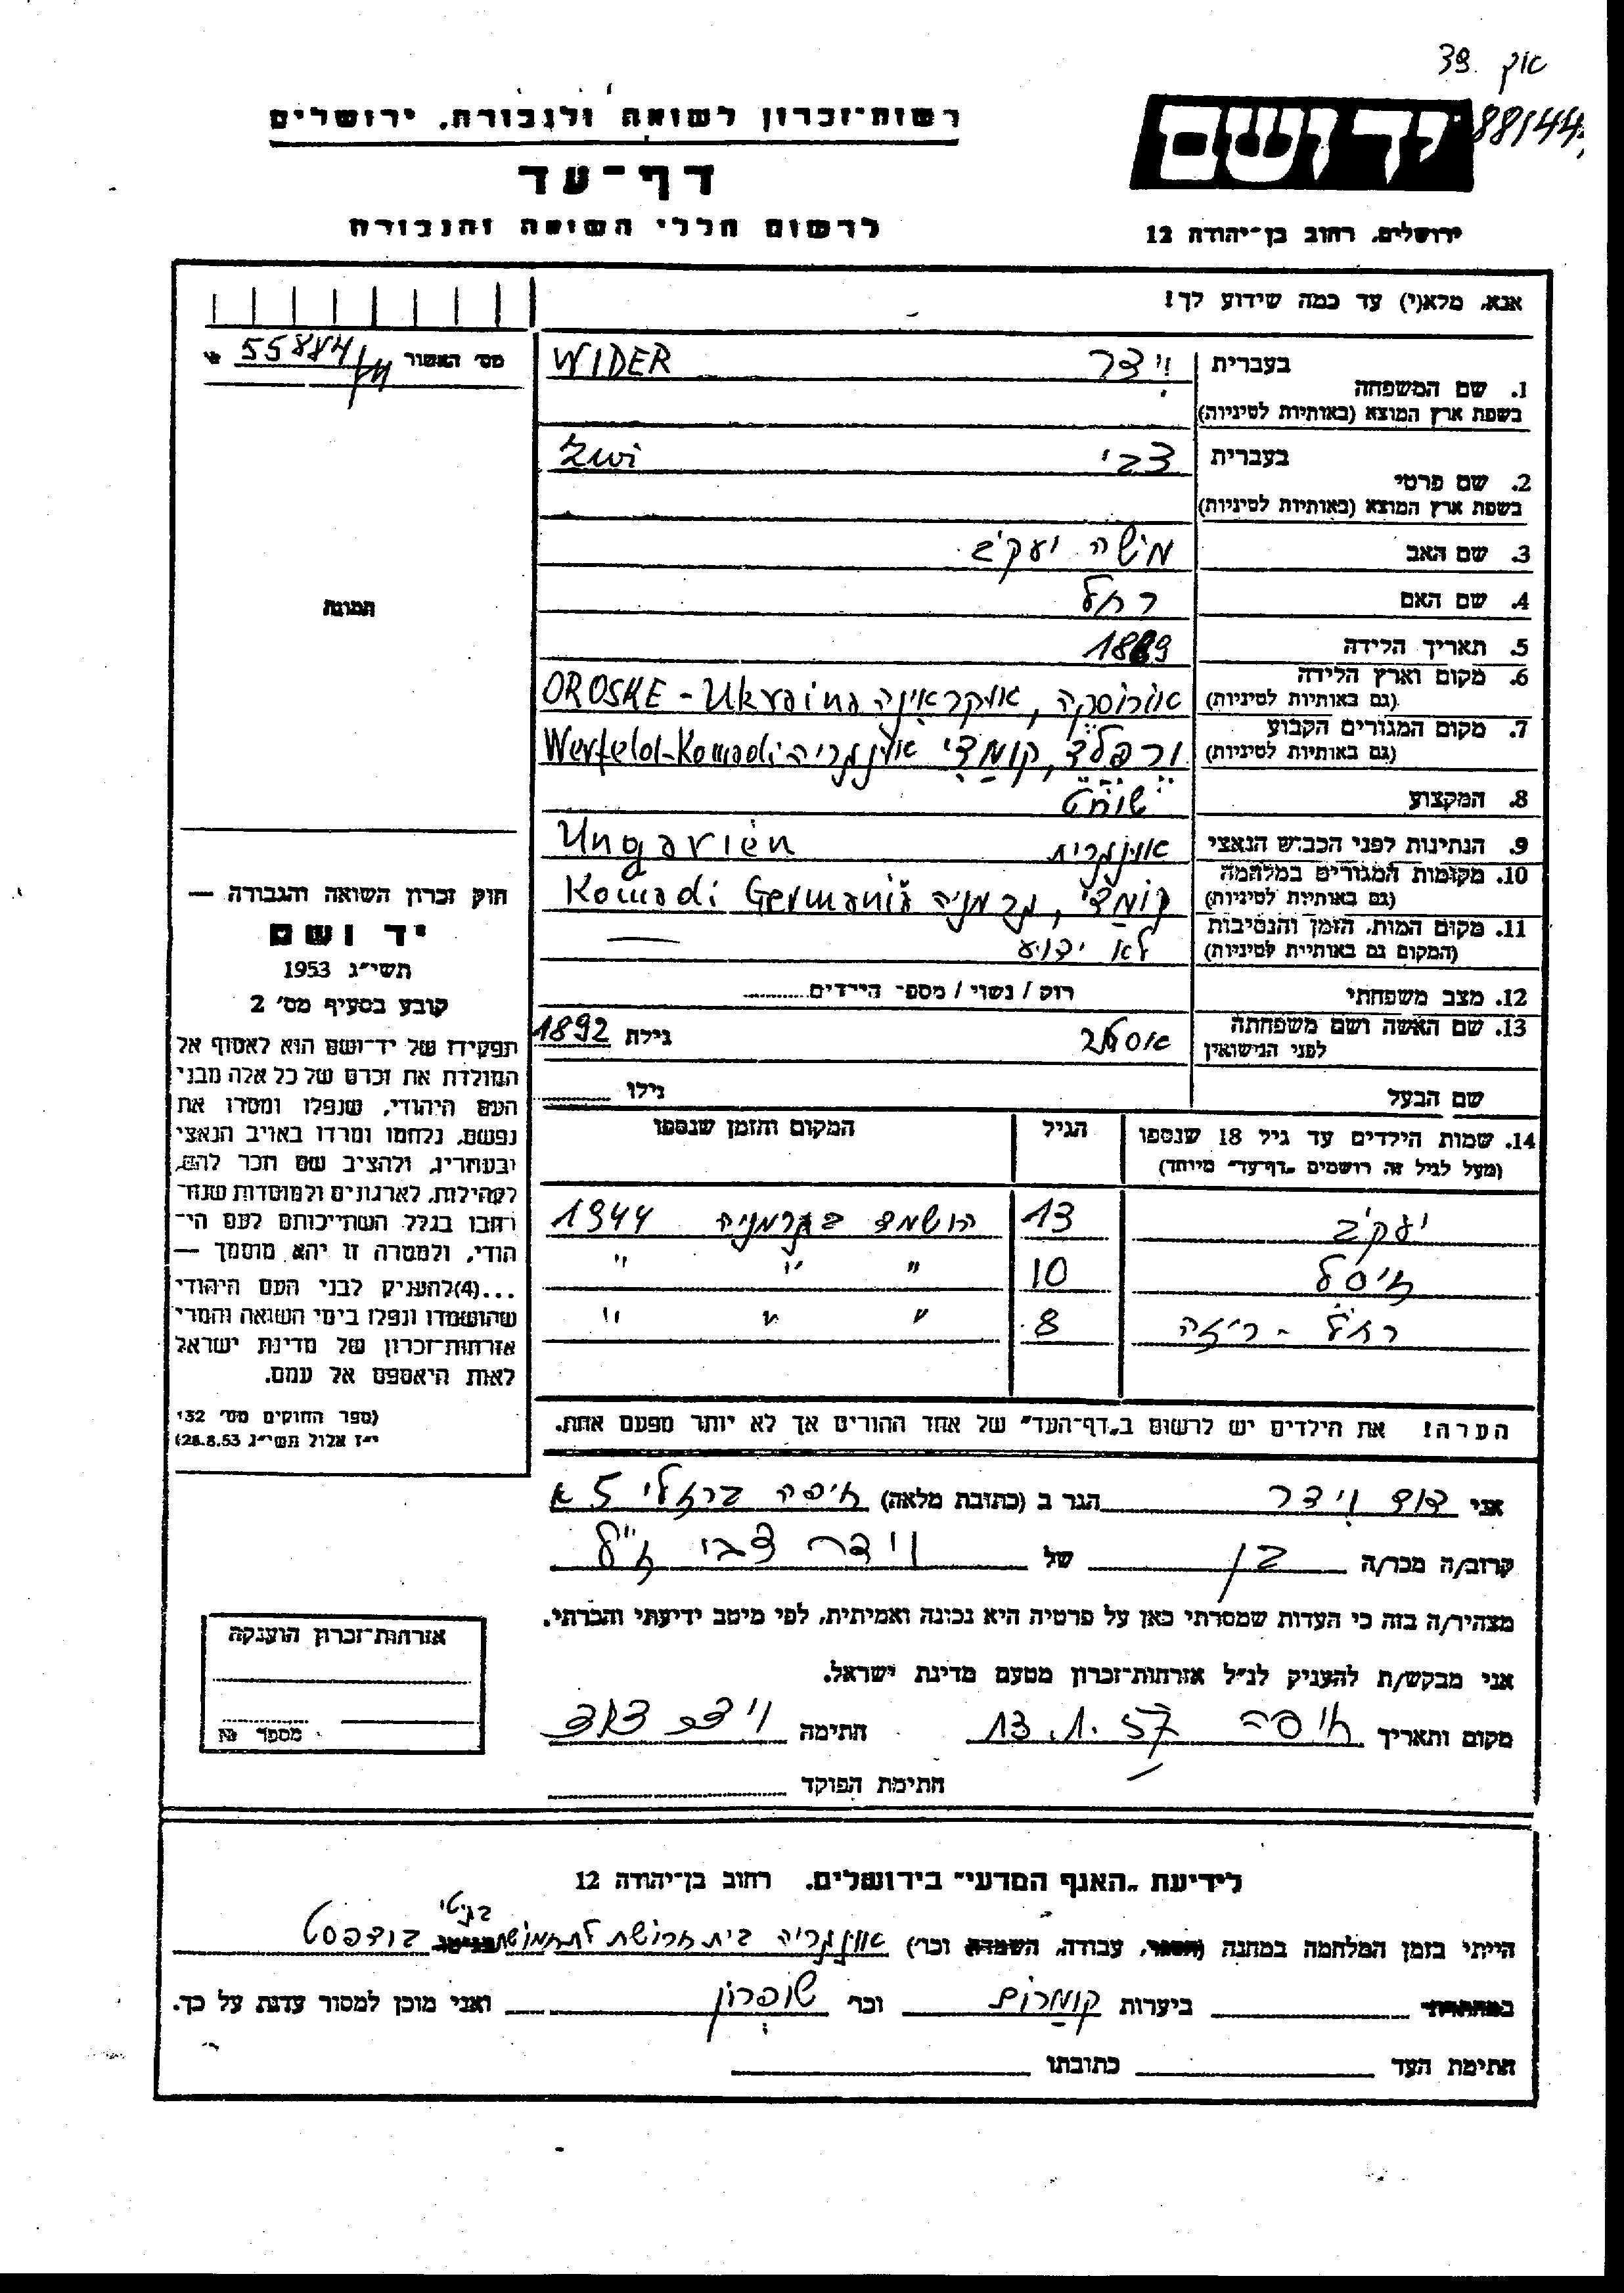 אוק 39.
88144
יד ושם
רשות־זכרון לשואה ולגבורה, ירושלים
דף־עד
לרשום חללי השואה והגבורה
ירושלים, רחוב בן־יהודה 12
אנא, מלא(י) עד כמה שידוע לך!
מס׳ האשור 55884
1. שם המשפחה
בעברית וידר WIDER
בשפת ארץ המוצא (באותיות לטיניות)
2. שם פרטי
בעברית צבי Zwi
בשפת ארץ המוצא (באותיות לטיניות)
3. שם האב משה יעקב
4. שם האם רחל
5. תאריך הלידה
6. מקום וארץ הלידה
(גם באותיות לטיניות) אורוסקה, אוקראינה OROSKE - Ukraina
7. מקום המגורים הקבוע
(גם באותיות לטיניות) ורפלד, קומדי אונגריה Werfeld-Komadi
8. המקצוע שוחט
9. הנתינות לפני הכבוש הנאצי אונגרית Ungarien
10. מקומות המגורים במלחמה
(גם באותיות לטיניות) קומדי, גרמניה Komadi Germania
11. מקום המות, הזמן והנסיבות
(המקום גם באותיות לטיניות) לא ידוע —
12. מצב משפחתי רוק / נשוי / מספר הילדים
13. שם האשה ושם משפחתה
לפני הנישואין אסתר גילה 1892
שם הבעל גילו
14. שמות הילדים עד גיל 18 שנספו הגיל המקום והזמן שנספו
(מעל לגיל זה רושמים "דף־עד" מיוחד)
יעקב 13 הושמד בגרמניה 1944
אייסל 10 " " "
רחל - ריזה 8 " " "
הערה! את הילדים יש לרשום ב"דף־העד" של אחד ההורים אך לא יותר מפעם אחת.
תמונה
חוק זכרון השואה והגבורה —
יד ושם
תשי״ג 1953
קובע בסעיף מס׳ 2
תפקידו של יד־ושם הוא לאסוף אל
המולדת את זכרם של כל אלה מבני
העם היהודי, שנפלו ומסרו את
נפשם, נלחמו ומרדו באויב הנאצי
ובעוזריו, ולהציב שם וזכר להם,
לקהילות, לארגונים ולמוסדות שנח־
רבו בגלל השתייכותם לעם הי־
הודי, ולמטרה זו יהא מוסמך —
...(4)להעניק לבני העם היהודי
שהושמדו ונפלו בימי השואה והמרי
אזרחות־זכרון של מדינת ישראל
לאות היאספם אל עמם.
(ספר החוקים מס׳ 132
י״ז אלול תשי״ג 28.8.53)
אני דוד וידר הגר ב (כתובת מלאה) חיפה ברזלי 5 א
קרוב/ה מכר/ה בן של וידר צבי ז״ל
מצהיר/ה בזה כי העדות שמסרתי כאן על פרטיה היא נכונה ואמיתית, לפי מיטב ידיעתי והכרתי.
אני מבקש/ת להעניק לנ״ל אזרחות־זכרון מטעם מדינת ישראל.
מקום ותאריך חיפה 13.1.57 חתימה וידר דוד
חתימת הפוקד
אזרחות־זכרון הוענקה
מספר №
לידיעת "האגף המדעי" בירושלים, רחוב בן־יהודה 12
הייתי בזמן המלחמה במחנה (הסגר, עבודה, השמדה וכר׳) אונגריה בית חרושת לתחמושת בגיטו בודפסט
במחתרת ביערות קומרום וכר׳ שופרון ואני מוכן למסור עדות על כך.
חתימת העד כתובתו